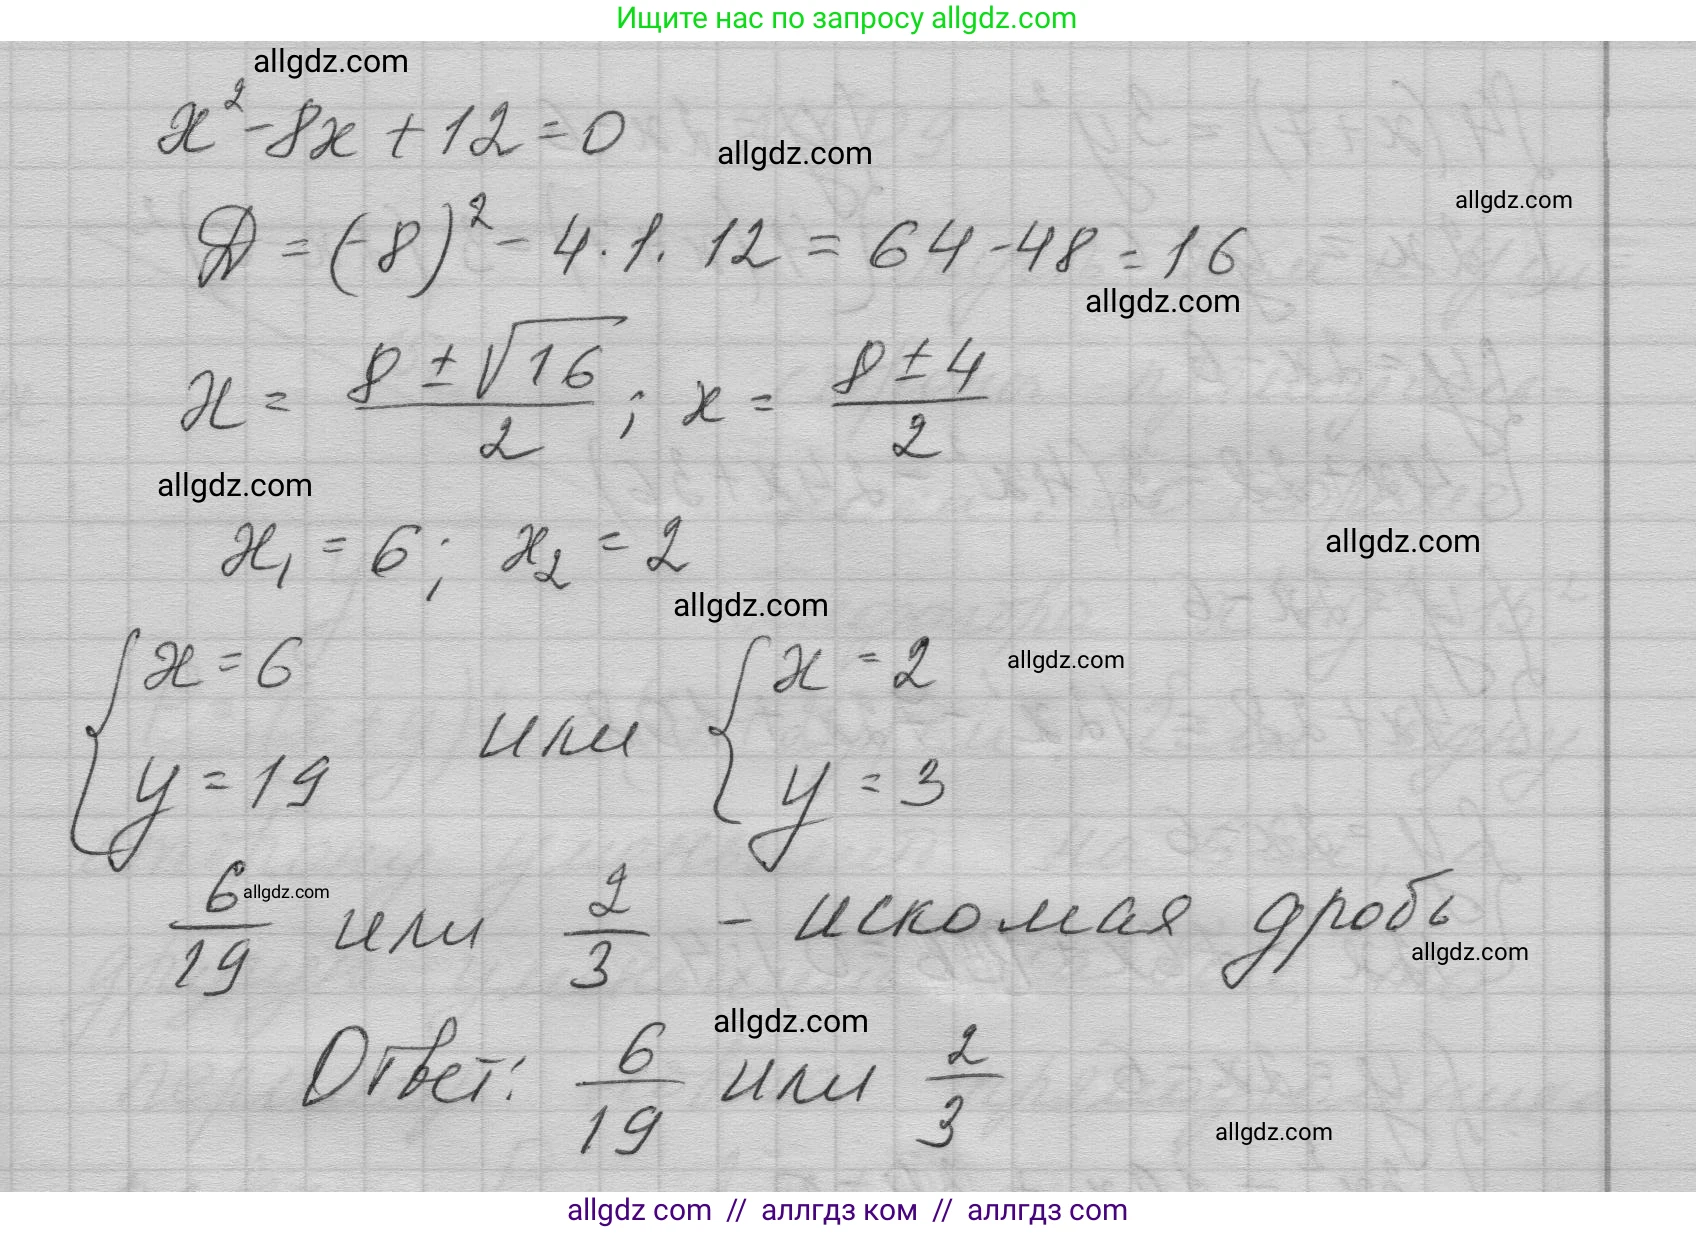 Ищите нас по запросу allgdz.com
allgdz.com
x² - 8x + 12 = 0
allgdz.com
allgdz.com
Д = (-8)² - 4 · 1 · 12 = 64 - 48 = 16
allgdz.com
x = (8 ± √16)/2 ; x = (8 ± 4)/2
allgdz.com
x₁ = 6; x₂ = 2
allgdz.com
allgdz.com
{ x = 6 { x = 2
allgdz.com
или
y = 19 y = 3
6/19 или 2/3 - искомая дробь
allgdz.com
allgdz.com
allgdz.com
Ответ: 6/19 или 2/3
allgdz.com
allgdz com // аллгдз ком // аллгдз com